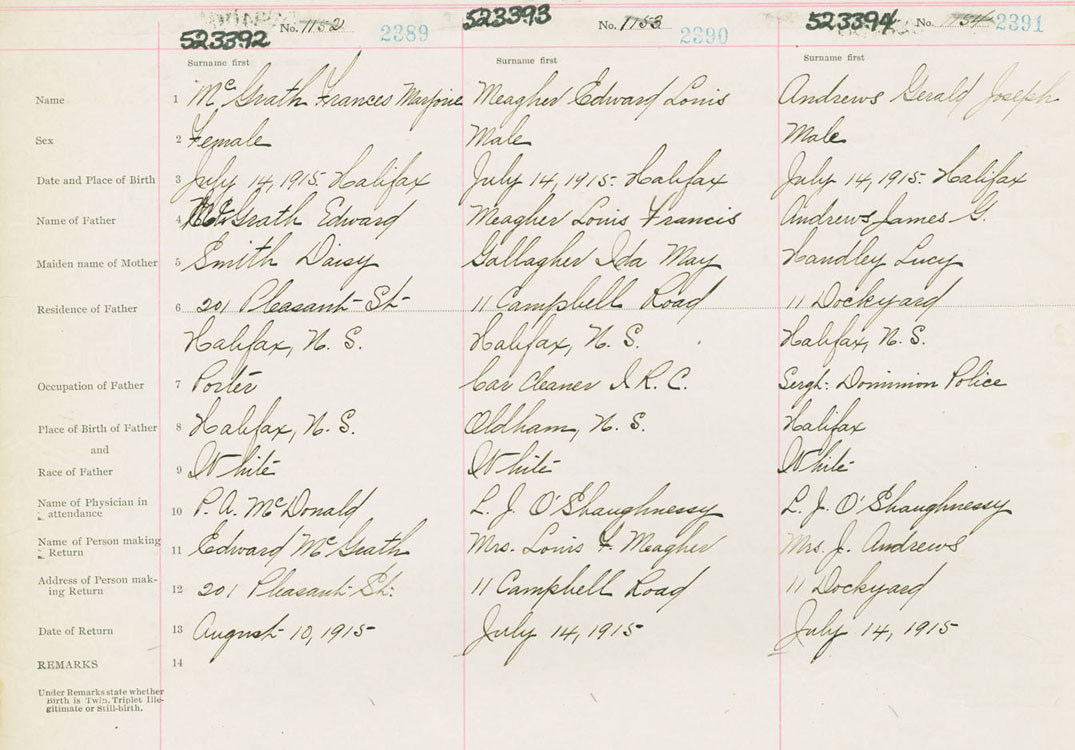 523392 No. 1152 2389 523393 No. 1153 2390 523394 No. 1154 2391
Surname first Surname first Surname first
Name 1 McGrath Frances Marjorie Meagher Edward Louis Andrews Gerald Joseph
Sex 2 Female Male Male
Date and Place of Birth 3 July 14, 1915. Halifax July 14, 1915. Halifax July 14, 1915. Halifax
Name of Father 4 McGrath Edward Meagher Louis Francis Andrews James G.
Maiden name of Mother 5 Smith Daisy Gallagher Ida May Handley Lucy
Residence of Father 6 201 Pleasant St. 11 Campbell Road 11 Dockyard
Halifax, N. S. Halifax, N. S. Halifax, N. S.
Occupation of Father 7 Porter Car Cleaner I. R. C. Sergt. Dominion Police
Place of Birth of Father 8 Halifax, N. S. Oldham, N. S. Halifax
and
Race of Father 9 White White White
Name of Physician in
attendance 10 P. A. McDonald L. J. O'Shaughnessy L. J. O'Shaughnessy
Name of Person making
Return 11 Edward McGrath Mrs. Louis F. Meagher Mrs. J. Andrews
Address of Person mak-
ing Return 12 201 Pleasant St. 11 Campbell Road 11 Dockyard
Date of Return 13 August 10, 1915 July 14, 1915 July 14, 1915
REMARKS 14
Under Remarks state whether
Birth is Twin, Triplet Ille-
gitimate or Still-birth.